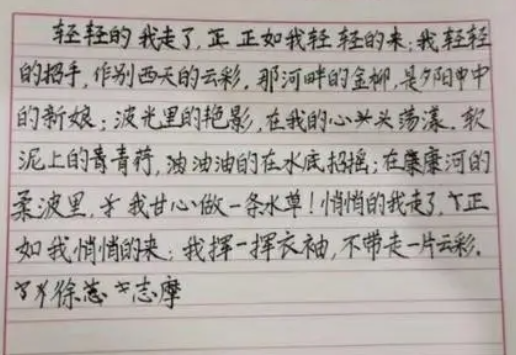 轻轻的我走了,正 正如我轻 轻的来;我轻轻
的招手,作别西天的云彩。那河畔的金柳,是夕阳申中
的新娘;波光里的艳影,在我的心头头荡漾。软
泥上的青青荇,油油油的在水底招摇;在康康河的
柔波里,我甘心做一条水草!悄悄的我走了,正
如我悄悄的来;我挥一挥衣袖,不带走一片云彩。
徐志 志摩